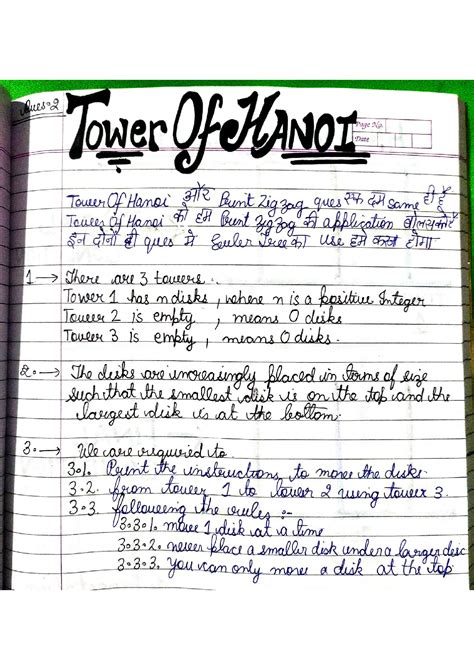 Ques-2
Tower Of HANOI
Page No.
Date
Tower Of Hanoi और Print Zig Zag ques एक दम same ही है
Tower Of Hanoi को हम Print Zig Zag की application बोल सकते
इन दोनों ही ques में Euler Tree का use हमे करना होगा
1 → There are 3 towers.
Tower 1 has n disks, where n is a positive Integer
Tower 2 is empty, means 0 disks
Tower 3 is empty, means 0 disks.
2. → The disks are increasingly placed in terms of size
such that the smallest disk is on the top and the
largest disk is at the bottom.
3. → We are required to
3.1. Print the instructions to move the disks.
3.2. from tower 1 to tower 2 using tower 3.
3.3. following the rules :-
3.3.1. move 1 disk at a time
3.3.2. never place a smaller disk under a larger disc
3.3.3. You can only move a disk at the top